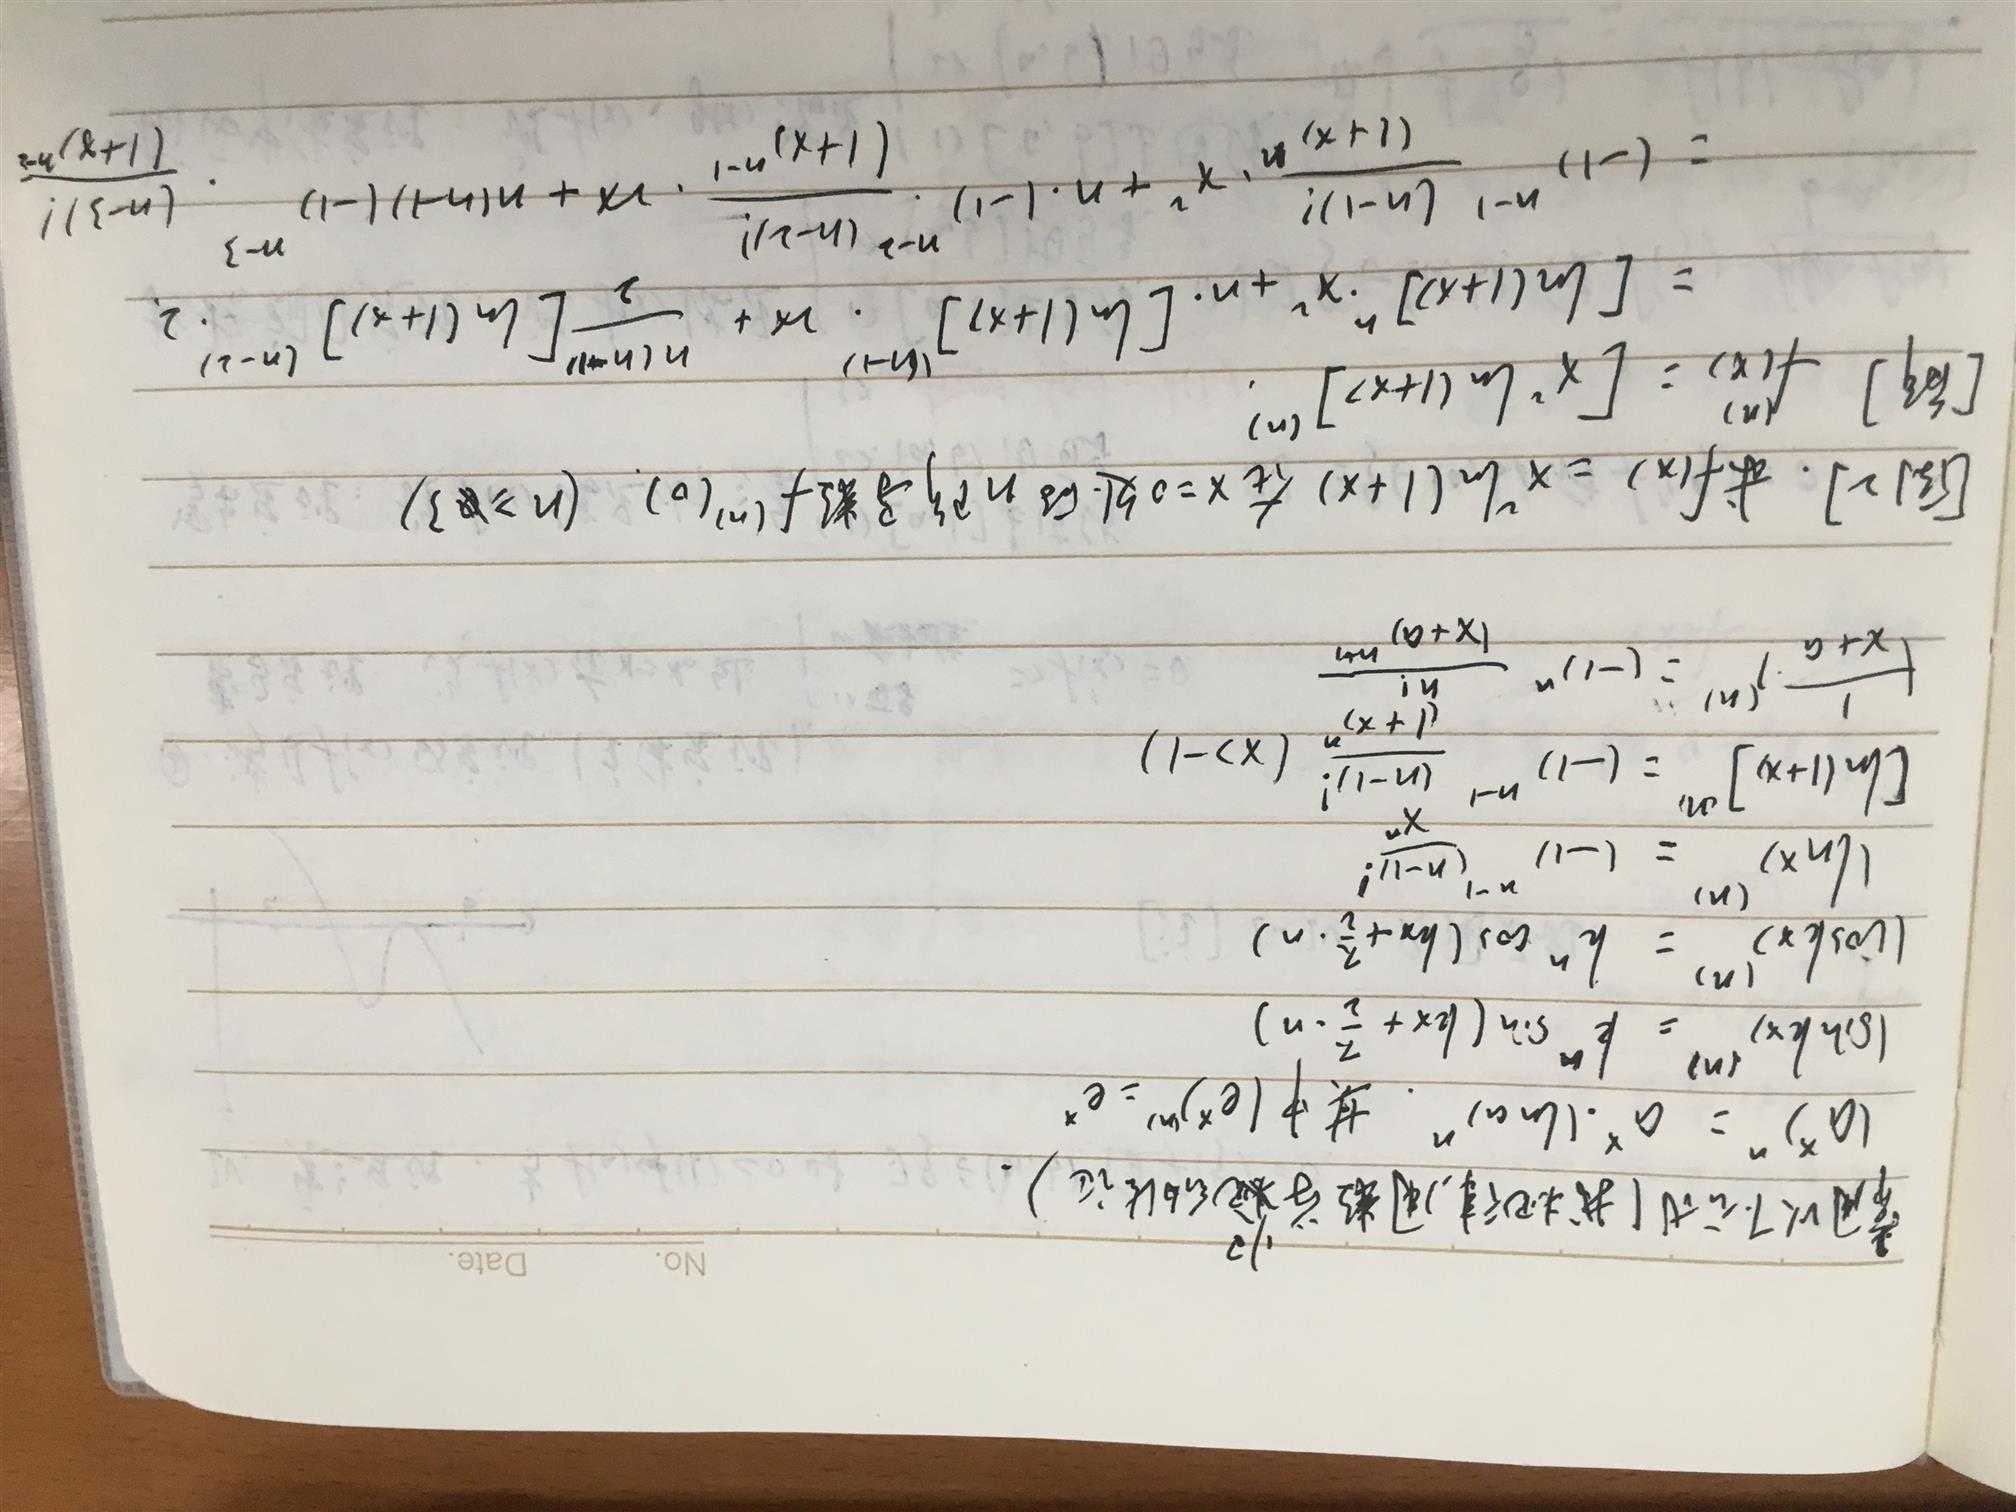 No.          Date.
常用以下公式(技术规律,用数学归纳法证).
(aˣ)ⁿ = aˣ·(ln a)ⁿ. 其中 (eˣ)⁽ⁿ⁾ = eˣ
(sin kx)⁽ⁿ⁾ = kⁿ sin(kx + π/2·n)
(cos kx)⁽ⁿ⁾ = kⁿ cos(kx + π/2·n)
(ln x)⁽ⁿ⁾ = (-1)ⁿ⁻¹ (n-1)!/xⁿ
[ln(1+x)]⁽ⁿ⁾ = (-1)ⁿ⁻¹ (n-1)!/(1+x)ⁿ (x>-1)
(1/(x+a))⁽ⁿ⁾ = (-1)ⁿ n!/(x+a)ⁿ⁺¹
[例2]. 求f(x) = x² ln(1+x) 在x=0处的n阶导数f⁽ⁿ⁾(0). (n≥3)
[解] f⁽ⁿ⁾(x) = [x² ln(1+x)]⁽ⁿ⁾.
= [ln(1+x)]ⁿ·x² + n·[ln(1+x)]⁽ⁿ⁻¹⁾·2x + n(n-1)/2 [ln(1+x)]⁽ⁿ⁻²⁾·2.
= (-1)ⁿ⁻¹ (n-1)!/(1+x)ⁿ·x² + n·(-1)ⁿ⁻²·(n-2)!/(1+x)ⁿ⁻¹·2x + n(n-1)(-1)ⁿ⁻³·(n-3)!/(1+x)ⁿ⁻²